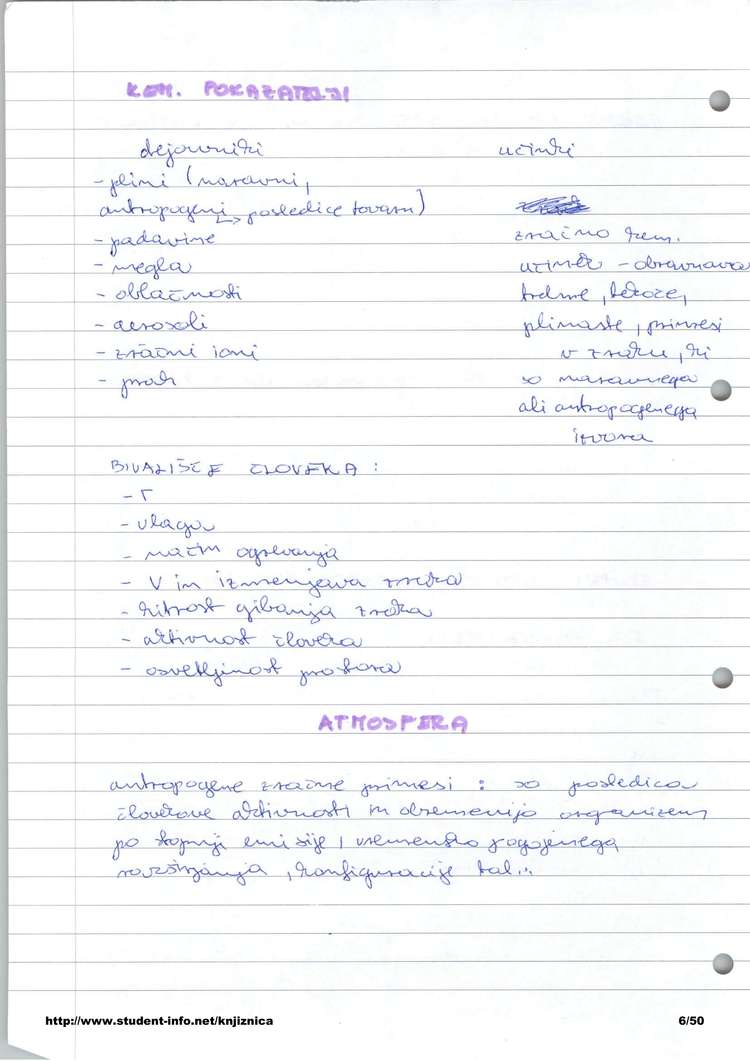 KEM. POKAZATELJI
dejavniki
- plini (naravni,
antropogeni → posledice tovarn)
- padavine
- megla
- oblačnosti
- aerosoli
- zračni ioni
- prah
učinki
zračno kem.
učinek - obravnava
trdne, tekoče,
plinaste, primesi
v zraku, ki
so naravnega
ali antropogenega
izvora
BIVALIŠČE ČLOVEKA :
- T
- vlaga
- način ogrevanja
- V in izmenjava zraka
- hitrost gibanja zraka
- aktivnost človeka
- osvetljenost prostora
ATMOSFERA
antropogene zračne primesi : so posledica
človekove aktivnosti in obremenijo organizem
po stopnji emisije, vremensko pogojenega
razširjanja, konfiguracije tal...
http://www.student-info.net/knjiznica
6/50